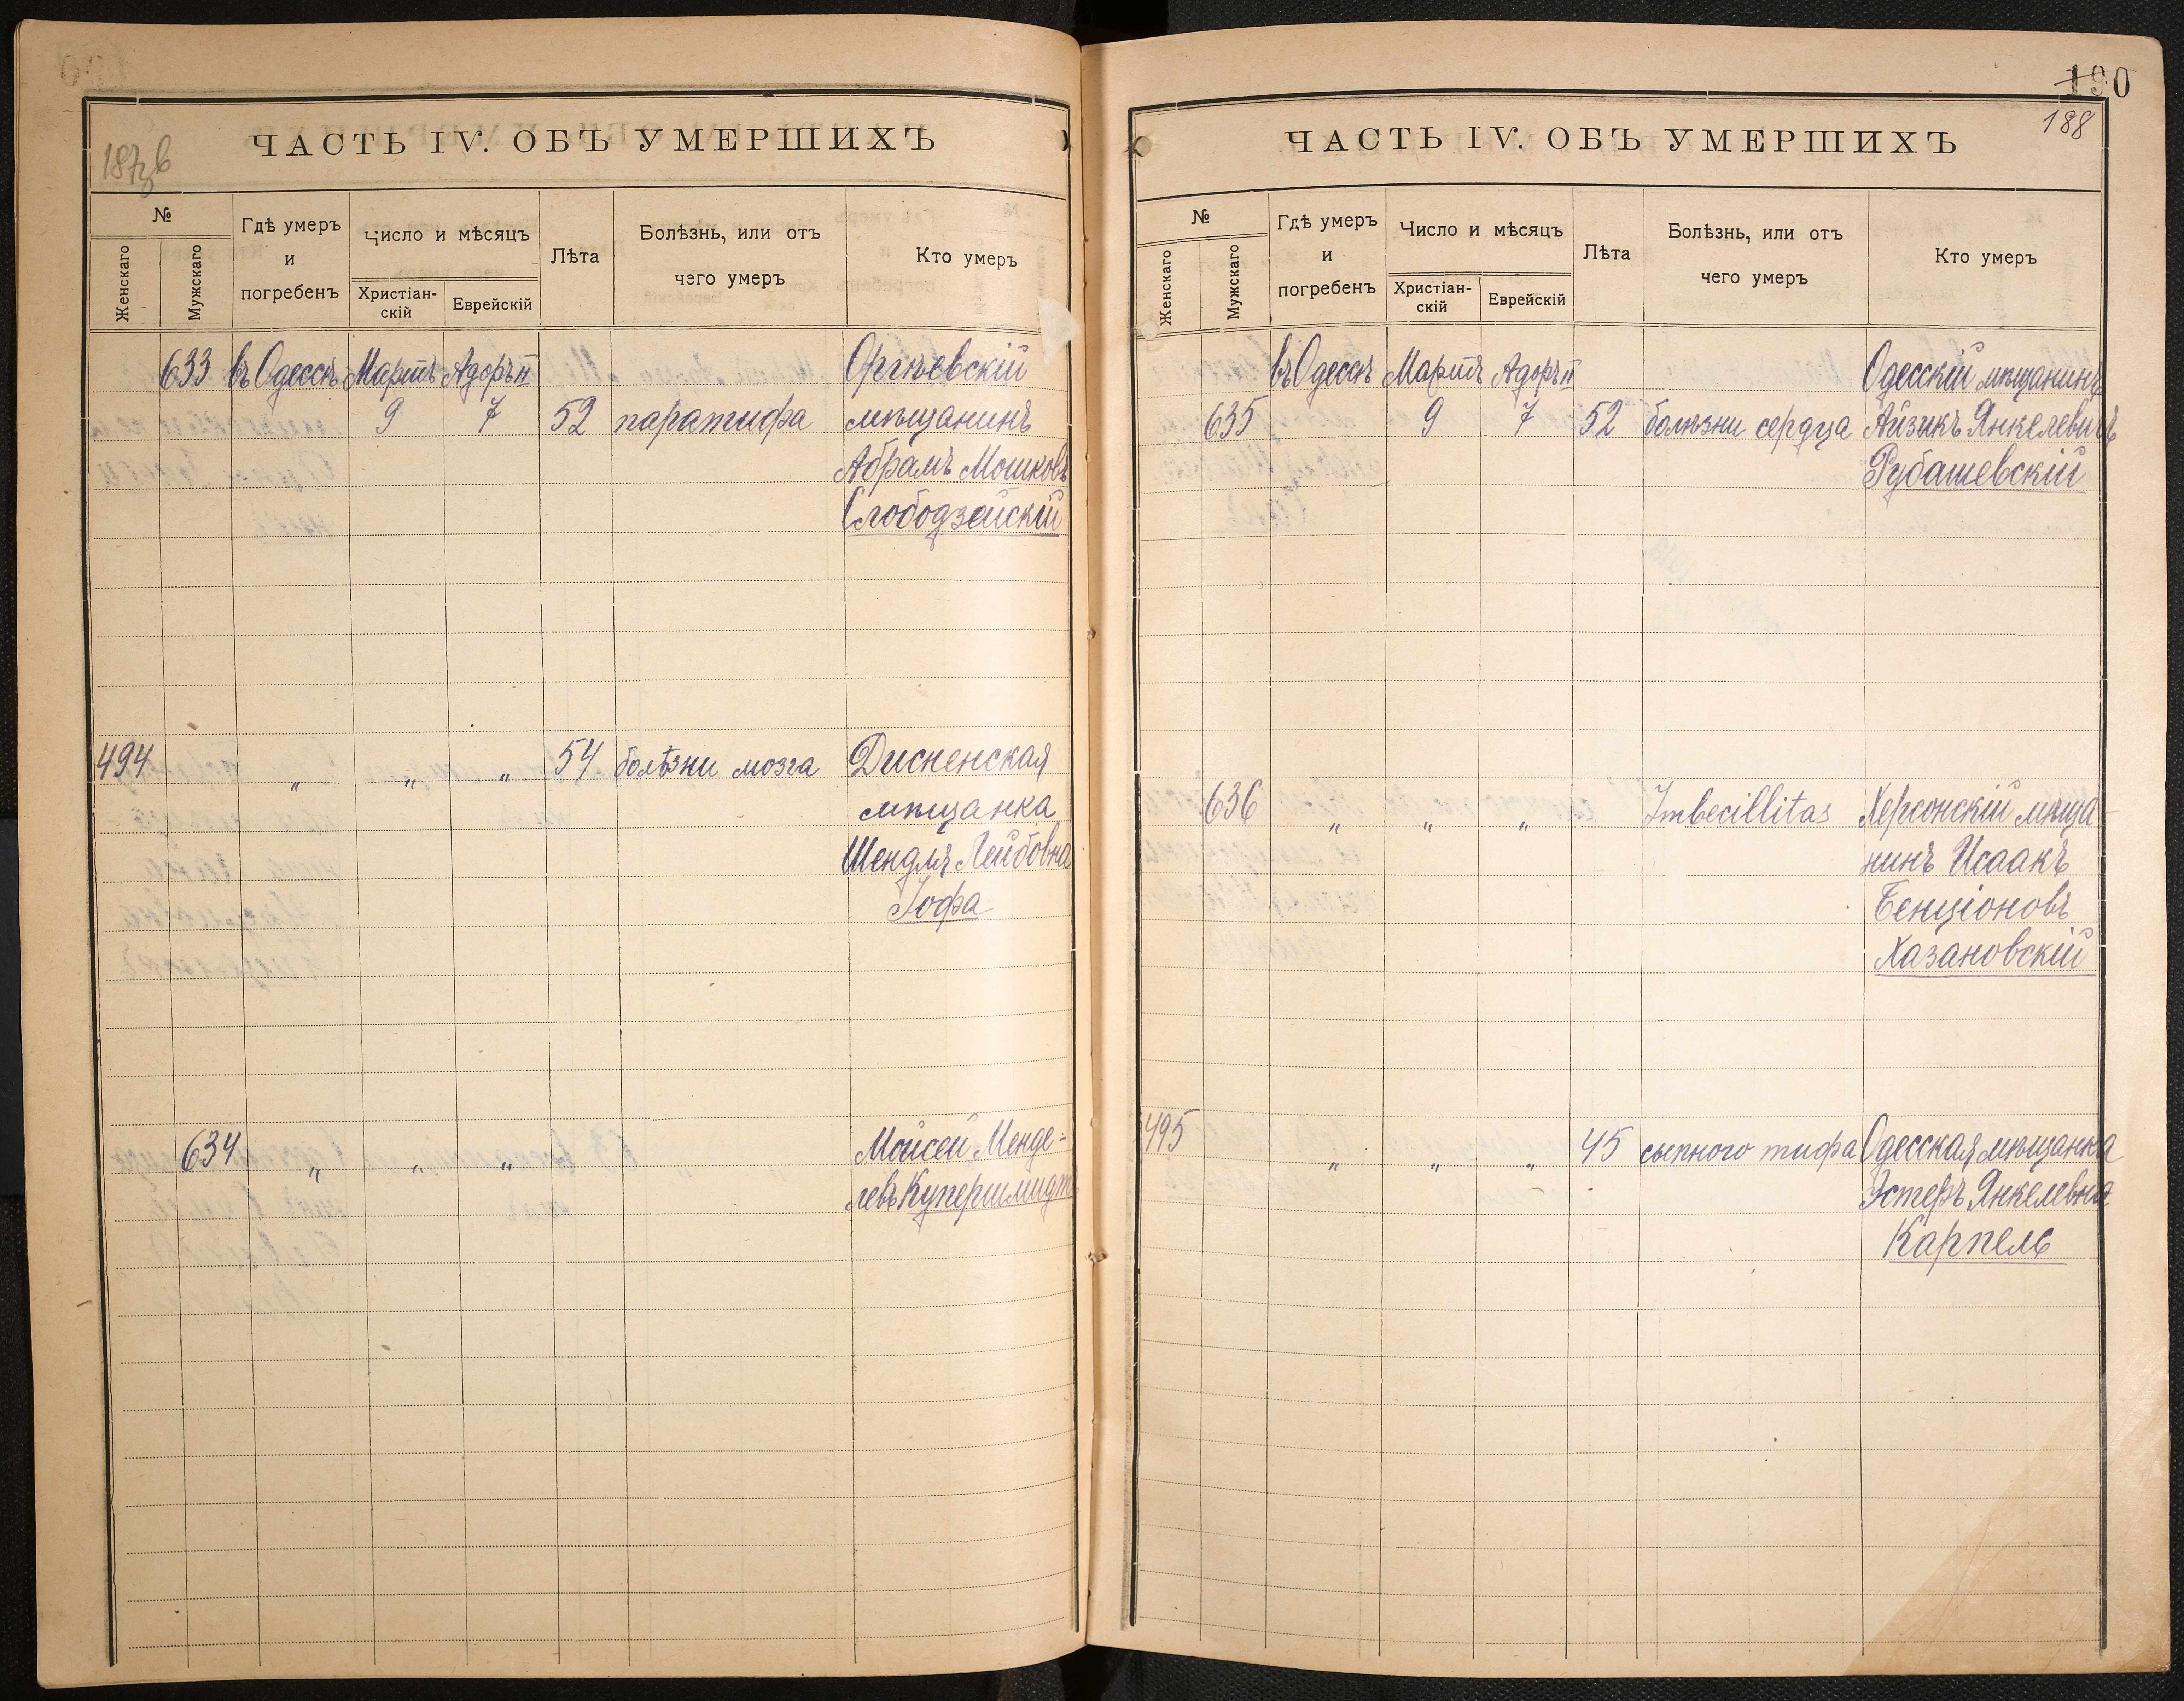 187зв
ЧАСТЬ IV. ОБЪ УМЕРШИХЪ
№
Женскаго
Мужскаго
Гдѣ умеръ
и
погребенъ
Число и мѣсяцъ
Христіан-
скій
Еврейскій
Лѣта
Болѣзнь, или отъ
чего умеръ
Кто умеръ
633 въ Одессѣ Мартъ Адоръ II Оргѣевскій
9 7 52 паратифа мѣщанинъ
Абрамъ Мошковъ
Слободзейскій
494 „ „ „ 54 болѣзни мозга Дисненская
мѣщанка
Шендля Лейбовна
Іофа
634 „ „ „ Мойсей Менде-
левъ Купершмидтъ
190
188
ЧАСТЬ IV. ОБЪ УМЕРШИХЪ
№
Женскаго
Мужскаго
Гдѣ умеръ
и
погребенъ
Число и мѣсяцъ
Христіан-
скій
Еврейскій
Лѣта
Болѣзнь, или отъ
чего умеръ
Кто умеръ
въ Одессѣ Мартъ Адоръ II Одесскій мѣщанинъ
635 9 7 52 болѣзни сердца Айзикъ Янкелевичъ
Рубашевскій
636 „ „ „ Imbecillitas Херсонскій мѣща-
нинъ Исаакъ
Бенціоновъ
Хазановскій
495 „ „ „ 45 сыпного тифа Одесская мѣщанка
Эстеръ Янкелевна
Карпель